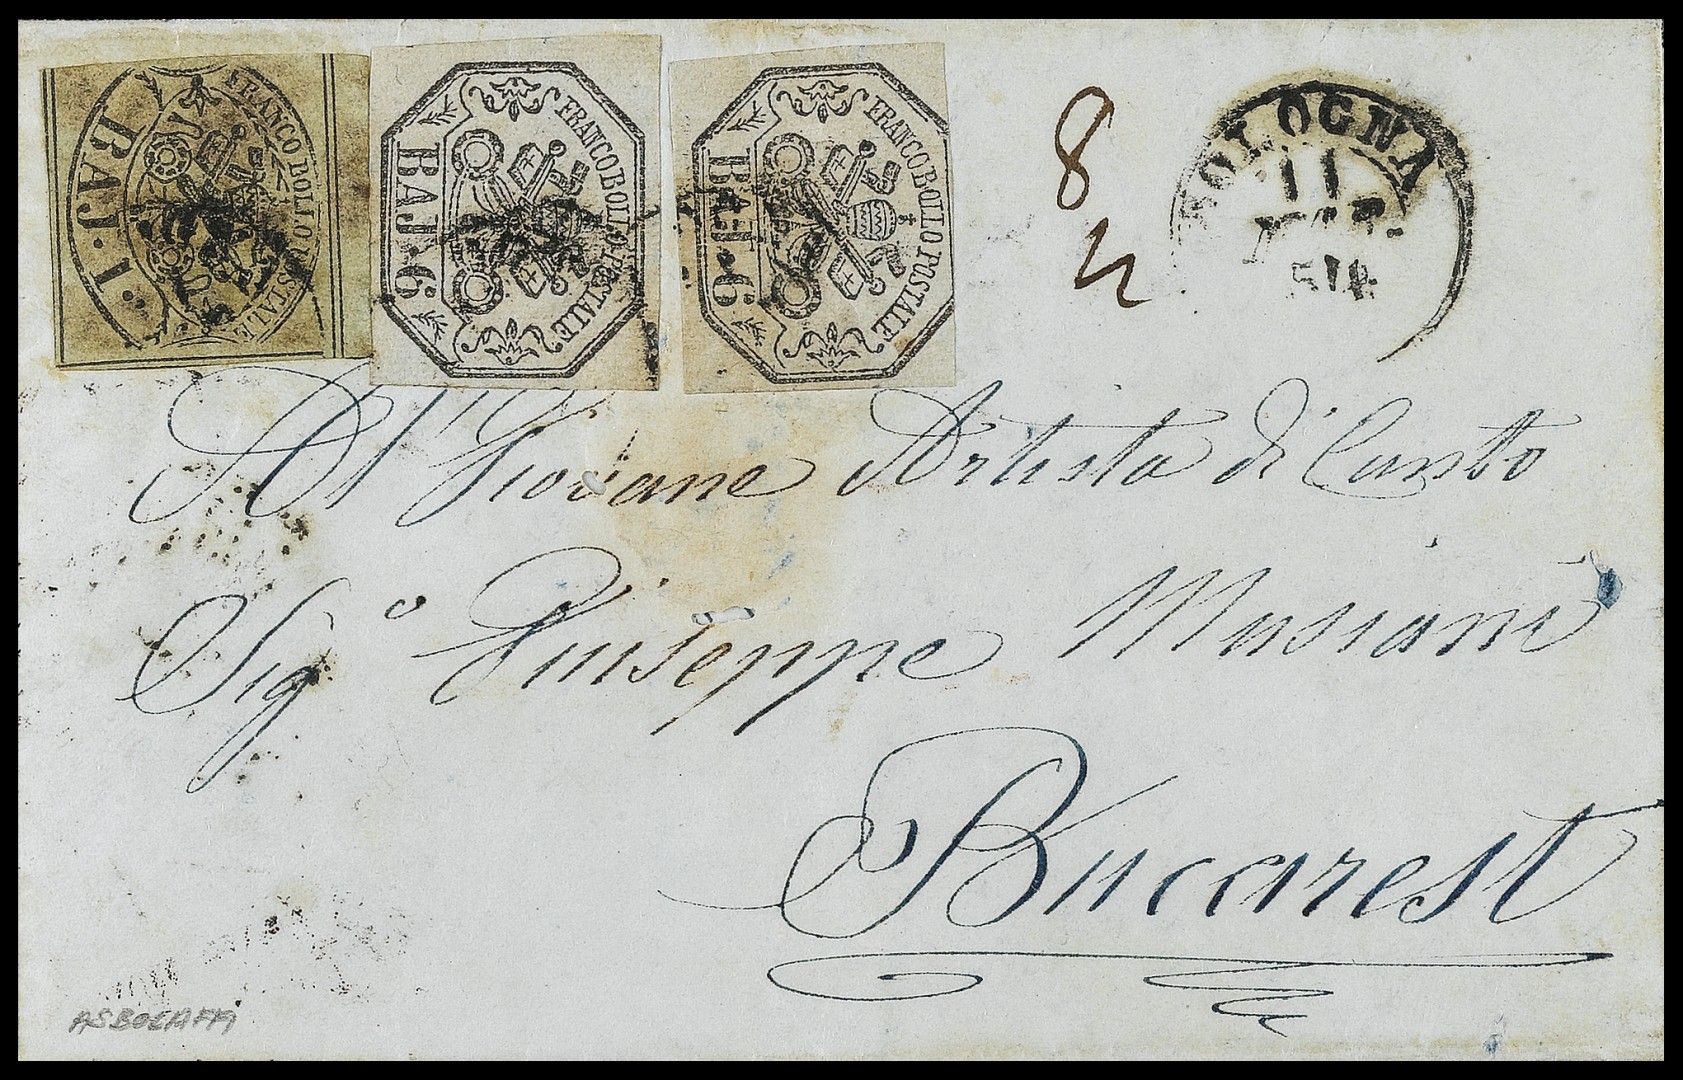 FRANCO BOLLO POSTALE
BAJ. 1
FRANCO BOLLO POSTALE
BAJ. 6
FRANCO BOLLO POSTALE
BAJ. 6
8
BOLOGNA
11
Al Giovane Artista di Canto
Sigo Giuseppe Musiani
Bucarest
ASBOLAFFI